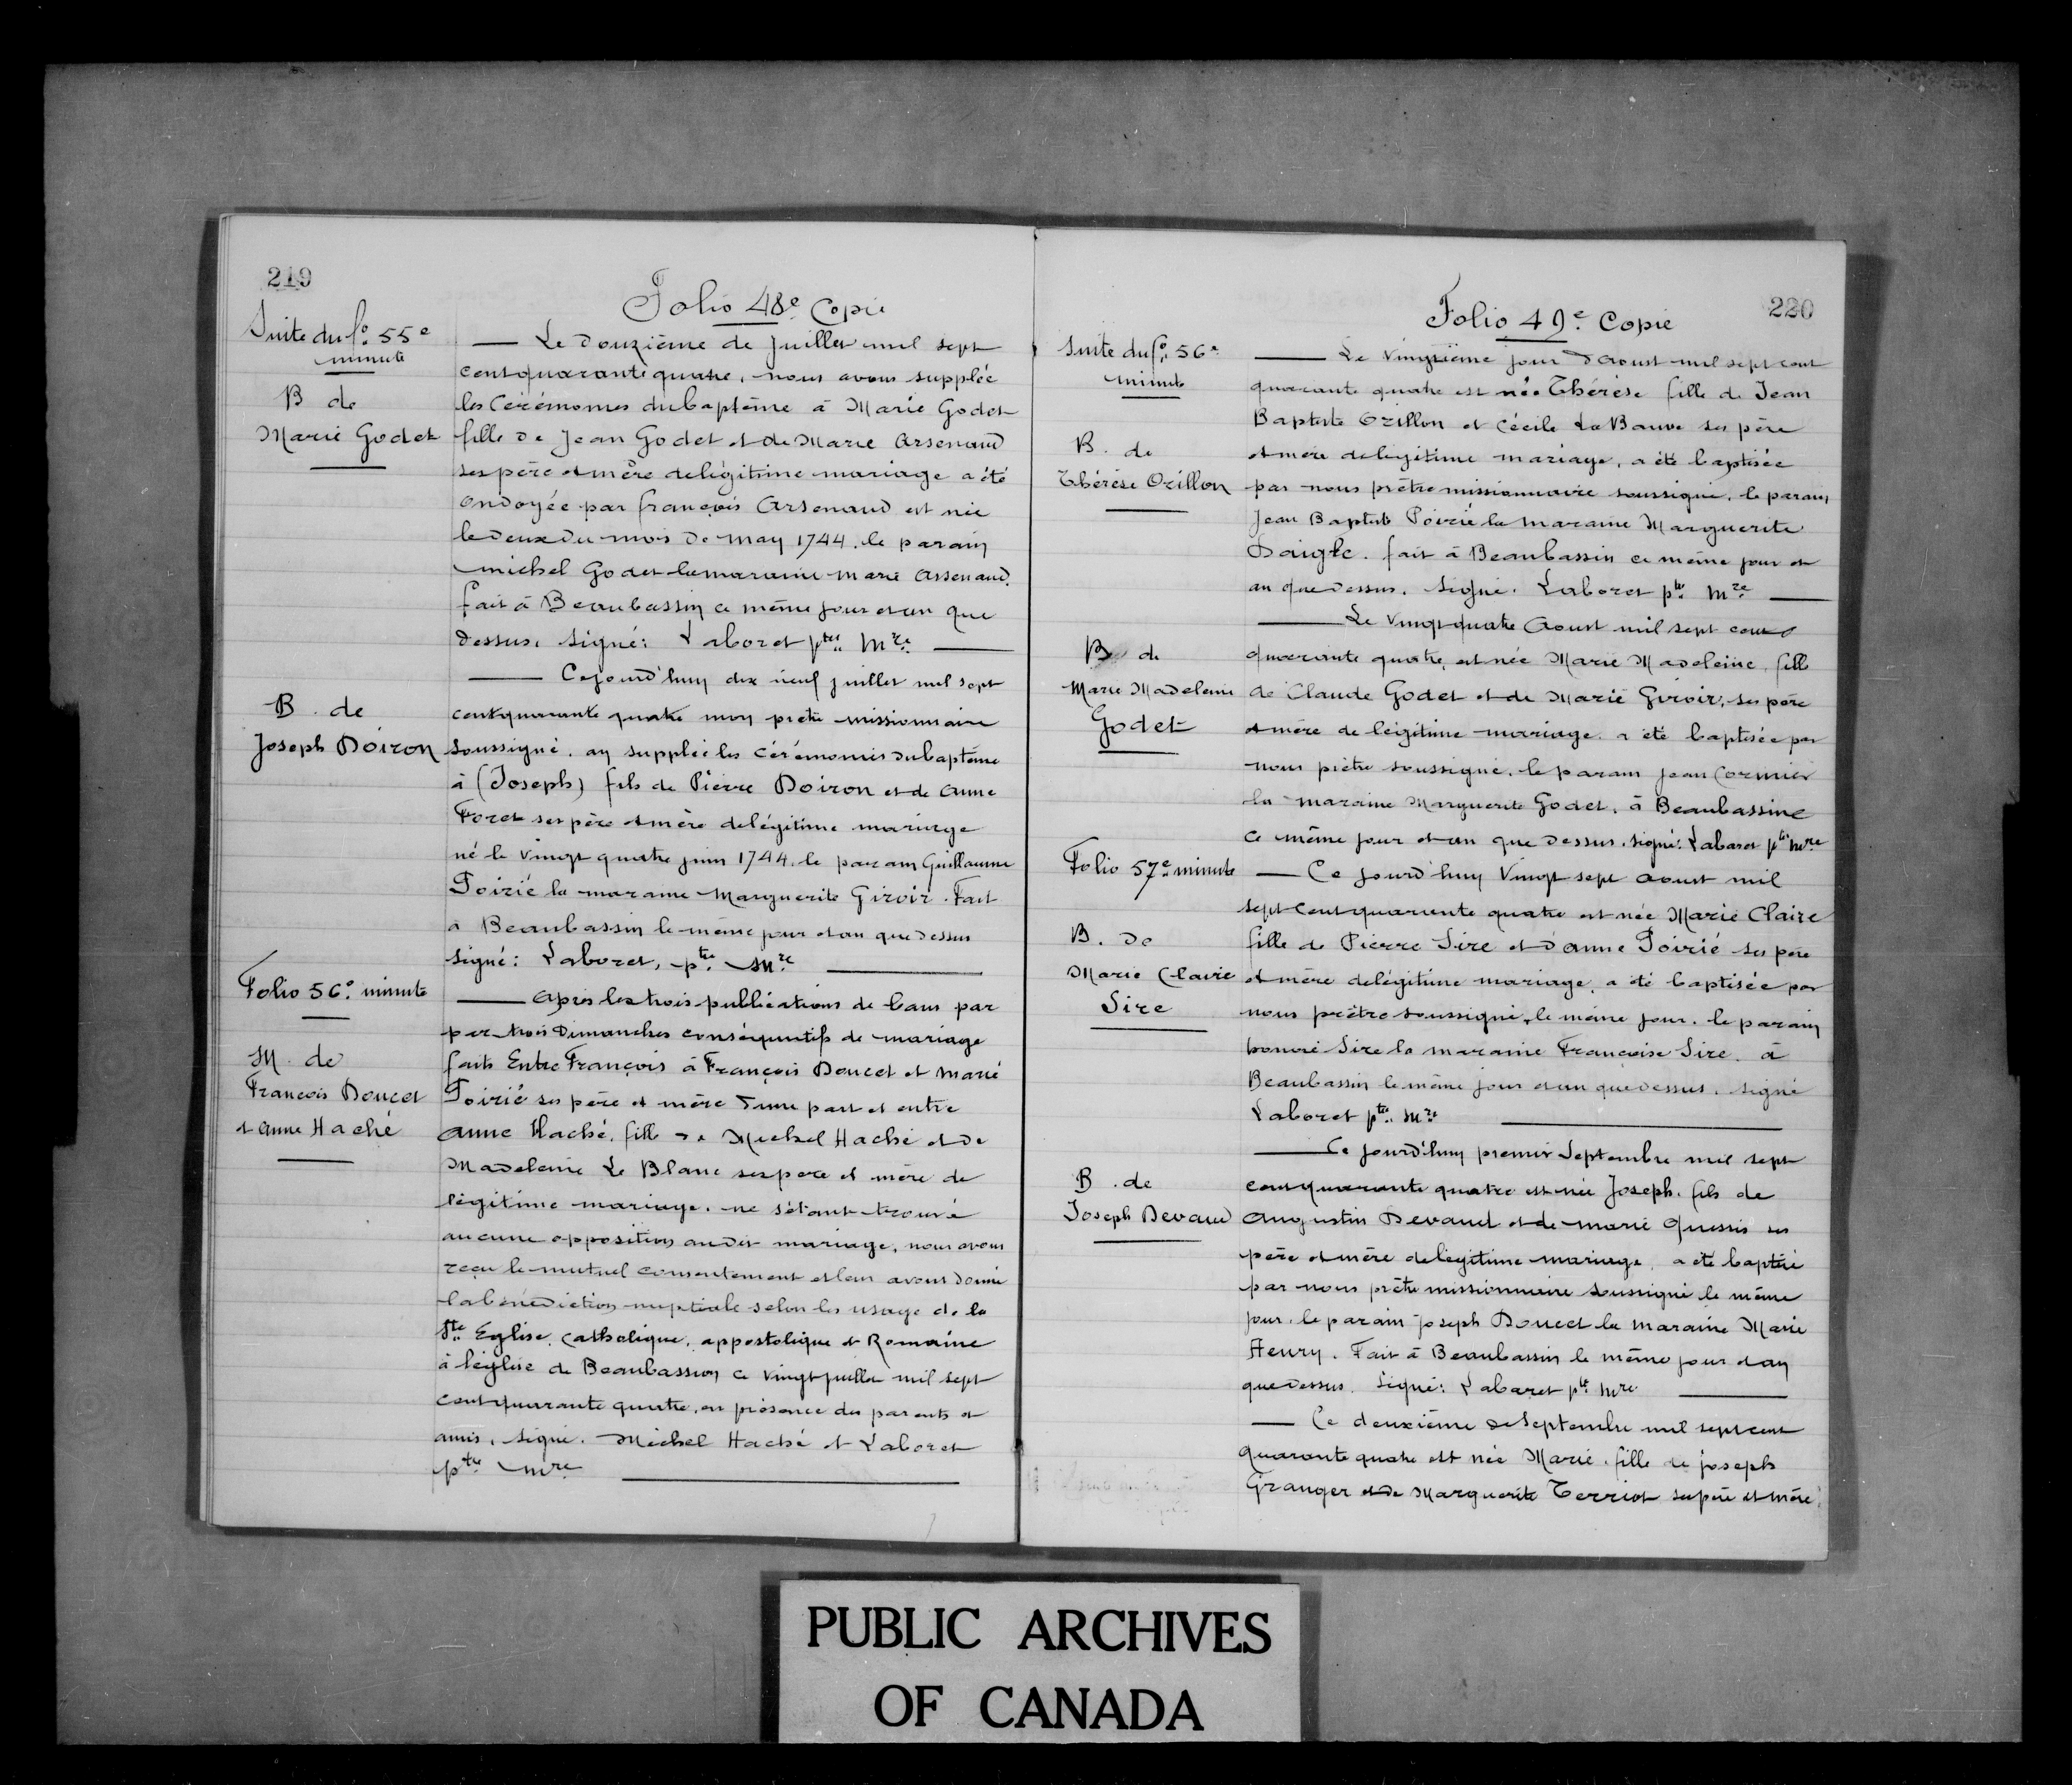 219
Folio 48e Copie
Suite du fo. 55e
minute
B de
Marie Godet
— Le douzième de juillet mil sept
cent quarante quatre, nous avons supplée
les cérémonies du baptême à Marie Godet
fille de Jean Godet et de Marie Arsenaud
ses père et mère de légitime mariage a été
ondoyée par françois Arsenaud est née
le deux du mois de may 1744. le parain
michel Godet la maraine marie Arsenaud.
fait à Beaubassin ce même jour et an que
dessus. Signé: Laboret ptre Mre
B. de
Joseph Doiron
— Cejourd'huy dix neuf juillet mil sept
cent quarante quatre moy prêtre missionnaire
soussigné. ay supplée les cérémonies du baptême
à (Joseph) fils de Pierre Doiron et de Anne
Foret ses père et mère de légitime mariage
né le vingt quatre juin 1744. le parain Guillaume
Poirié la maraine Marguerite Giroir. Fait
à Beaubassin le même jour et an que dessus
Signé: Laboret, ptre Mre
Folio 56e minute
M. de
François Doucet
et Anne Haché
— Après les trois publications de bans par
par trois dimanches conséquutifs de mariage
faits Entre François à François Doucet et Marie
Poirié ses père et mère d'une part et entre
Anne Haché, fille de Michel Haché et de
Madeleine Le Blanc ses père et mère de
légitime mariage. ne s'étant trouvé
aucune opposition audit mariage, nous avons
reçu le mutuel consentement et leur avons donné
la bénédiction nuptiale selon les usage de la
Ste Eglise, Catholique, appostolique et Romaine
à l'église de Beaubassion ce vingt juillet mil sept
cent quarante quatre, en présence des parents et
amis, Signé. Michel Haché et Laboret
ptre mre
220
Folio 49e Copie
Suite du fo. 56e
minute
B. de
Thérèse Orillon
— Le vingtième jour d'Aoust mil sept cent
quarante quatre est née Thérèse fille de Jean
Baptiste Orillon et Cécile La Bauve ses père
et mère de légitime mariage, a été baptisée
par nous prêtre missionnaire soussigné, le parain
Jean Baptiste Poirié la maraine Marguerite
Daigle. fait à Beaubassin ce même jour et
an que dessus. Signé. Laboret ptre Mre
B de
Marie Madeleine
Godet
— Le vingt quatre Aoust mil sept cent
quarante quatre, est née Marie Madeleine, fille
de Claude Godet et de Marie Giroir, ses père
et mère de légitime mariage. a été baptisée par
nous prêtre soussigné, le parain Jean Cormier
la maraine Marguerite Godet, à Beaubassine
ce même jour et an que dessus. signé. Laboret ptre mre
Folio 57e minute
B. de
Marie Claire
Sire
— Ce jourd'huy Vingt sept aoust mil
sept cent quarante quatre est née Marie Claire
fille de Pierre Sire et d'anne Poirié ses père
et mère de légitime mariage, a été baptisée par
nous prêtre soussigné, le même jour. le parain
honoré Sire la maraine Françoise Sire. à
Beaubassin le même jour et an que dessus. signé
Laboret ptre Mre
B. de
Joseph Devaud
— Ce jourd'huy premier Septembre mil sept
cent quarante quatre est née Joseph. fils de
Augustin Devaud et de marie Quessis ses
père et mère de légitime mariage, a été baptisé
par nous prêtre missionnaire soussigné le même
jour. le parain Joseph Doucet la maraine Marie
Henry. Fait à Beaubassin le même jour et an
que dessus. Signé: Laboret ptre mre
— Ce deuxième de Septembre mil sept cent
quarante quatre est née Marie. fille de joseph
Granger et de Marguerite Terriot ses père et mère
PUBLIC ARCHIVES
OF CANADA